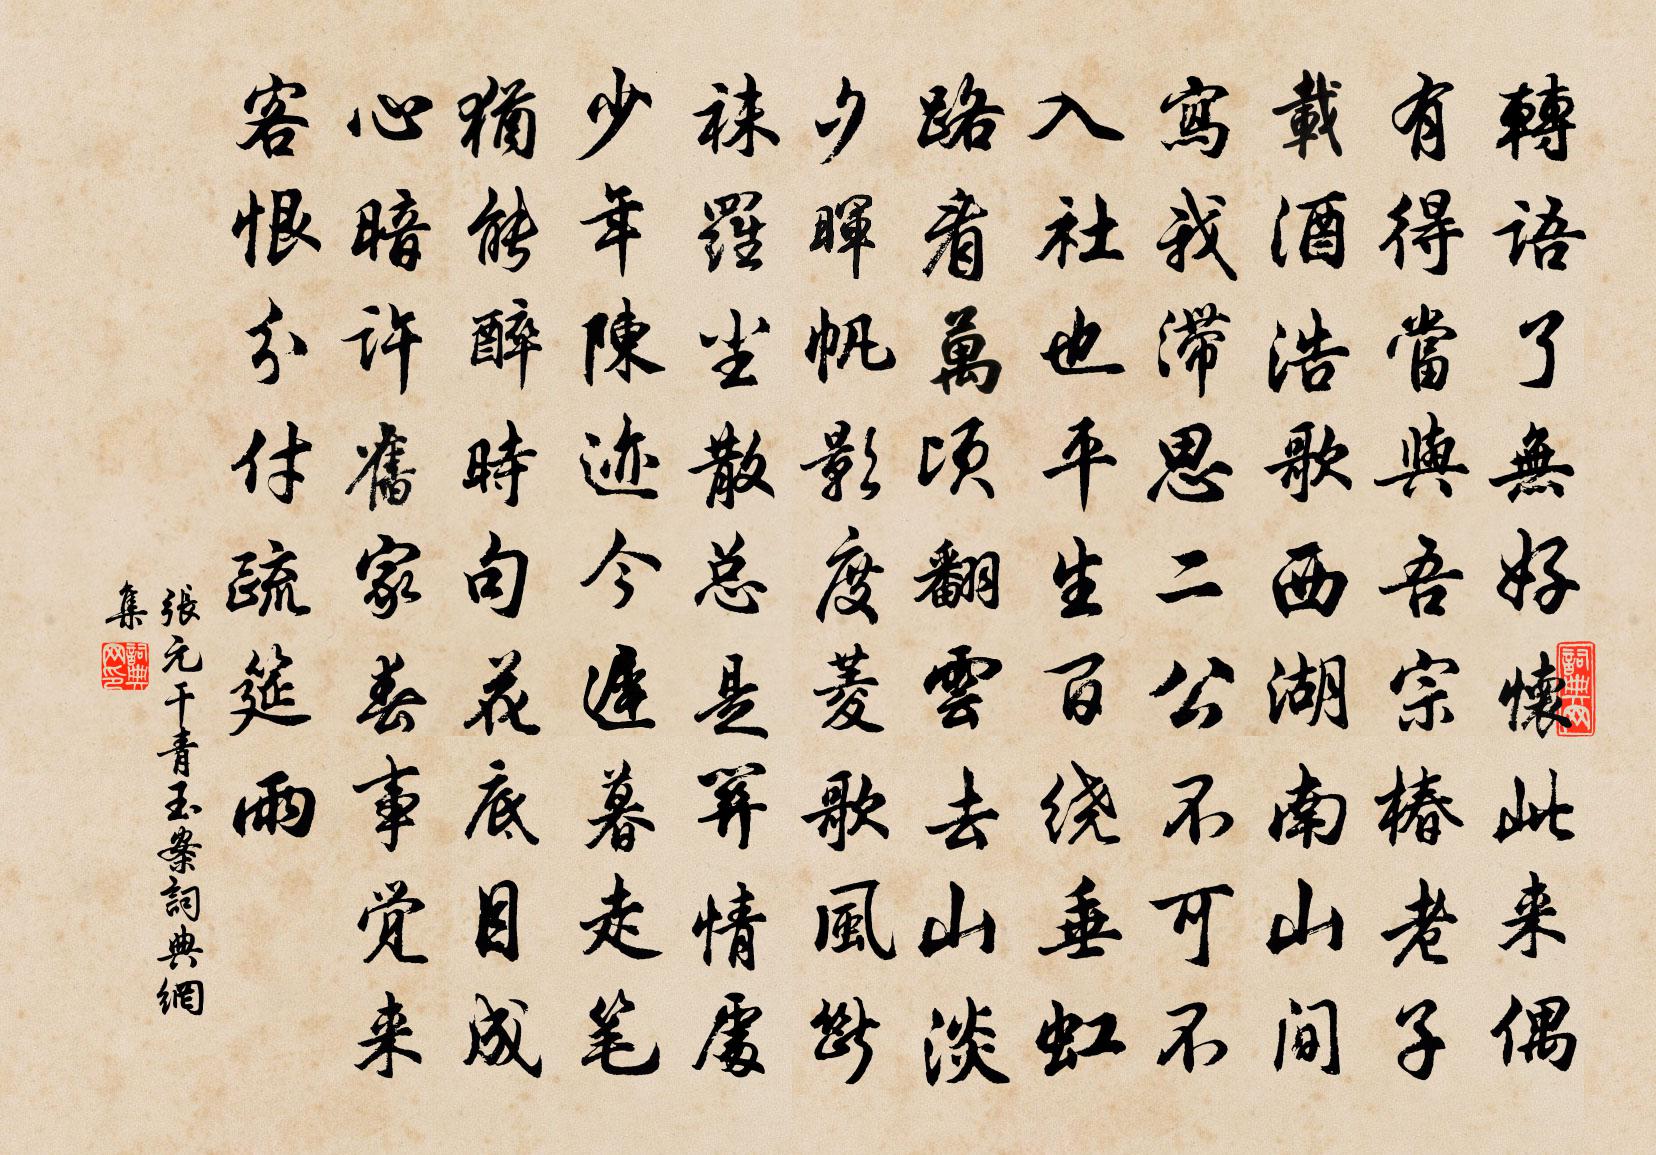 轉語了無好懷此来偶
有得當與吾宗椿老子
載酒浩歌西湖南山間
寫我滯思二公不可不
入社也平生百绕垂虹
路看萬頃翻雲去山淡
夕暉帆影度菱歌風斷
袜羅尘散总是關情處
少年陳迹今遲暮走笔
猶能醉時句花底目成
心暗許舊家春事觉来
客恨分付疏筵雨
張元干青玉案詞典網
集
詞典网
詞典网印